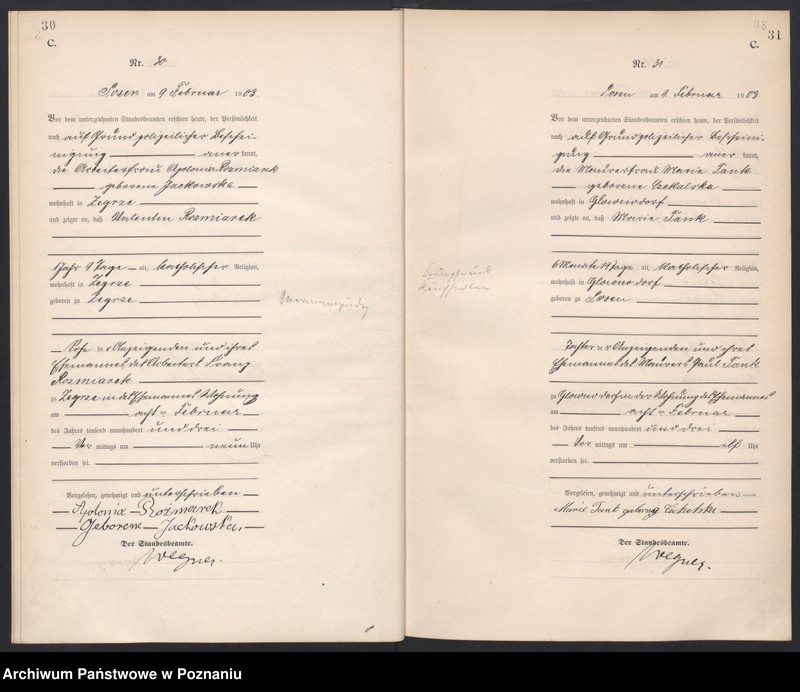 30
C.
Nr. 30
Posen am 9. Februar 1903.
Vor dem unterzeichneten Standesbeamten erschien heute, der Persönlichkeit
nach auf Grund polizeilicher Beschei-
nigung anerkannt,
die Arbeiterfrau Apolonia Rozmiarek
geborene Jackowska
wohnhaft in Zegrze
und zeigte an, daß Valentin Rozmiarek
1 Jahr 9 Tage alt, katholischer Religion,
wohnhaft in Zegrze
geboren zu Zegrze
Sohn der Anzeigenden und ihres
Ehemannes des Arbeiters Franz
Rozmiarek
zu Zegrze in des Ehemannes Wohnung
am acht ten Februar
des Jahres tausend neunhundert und drei
Vor mittags um neun Uhr
verstorben sei.
Vorgelesen, genehmigt und unterschrieben
Apolonia Rozmiarek
Geborene Jackowska,
Der Standesbeamte.
Wegner.
31
C.
Nr. 31
Posen am 9. Februar 1903
Vor dem unterzeichneten Standesbeamten erschien heute, der Persönlichkeit
nach auf Grund polizeilicher Bescheini-
gung anerkannt,
die Maurerfrau Marie Tank
geborene
wohnhaft in Glownodorf
und zeigte an, daß Marie Tank
6 Monate 19 Tage alt, katholischer Religion,
wohnhaft in Glownodorf
geboren zu Posen
Tochter der Anzeigenden und ihres
Ehemannes des Maurers Paul Tank
zu Glownodorf in der Wohnung des Ehemannes
am acht ten Februar
des Jahres tausend neunhundert und drei
Vor mittags um elf Uhr
verstorben sei.
Vorgelesen, genehmigt und unterschrieben
Marie Tank
Der Standesbeamte.
Wegner.
Archiwum Państwowe w Poznaniu